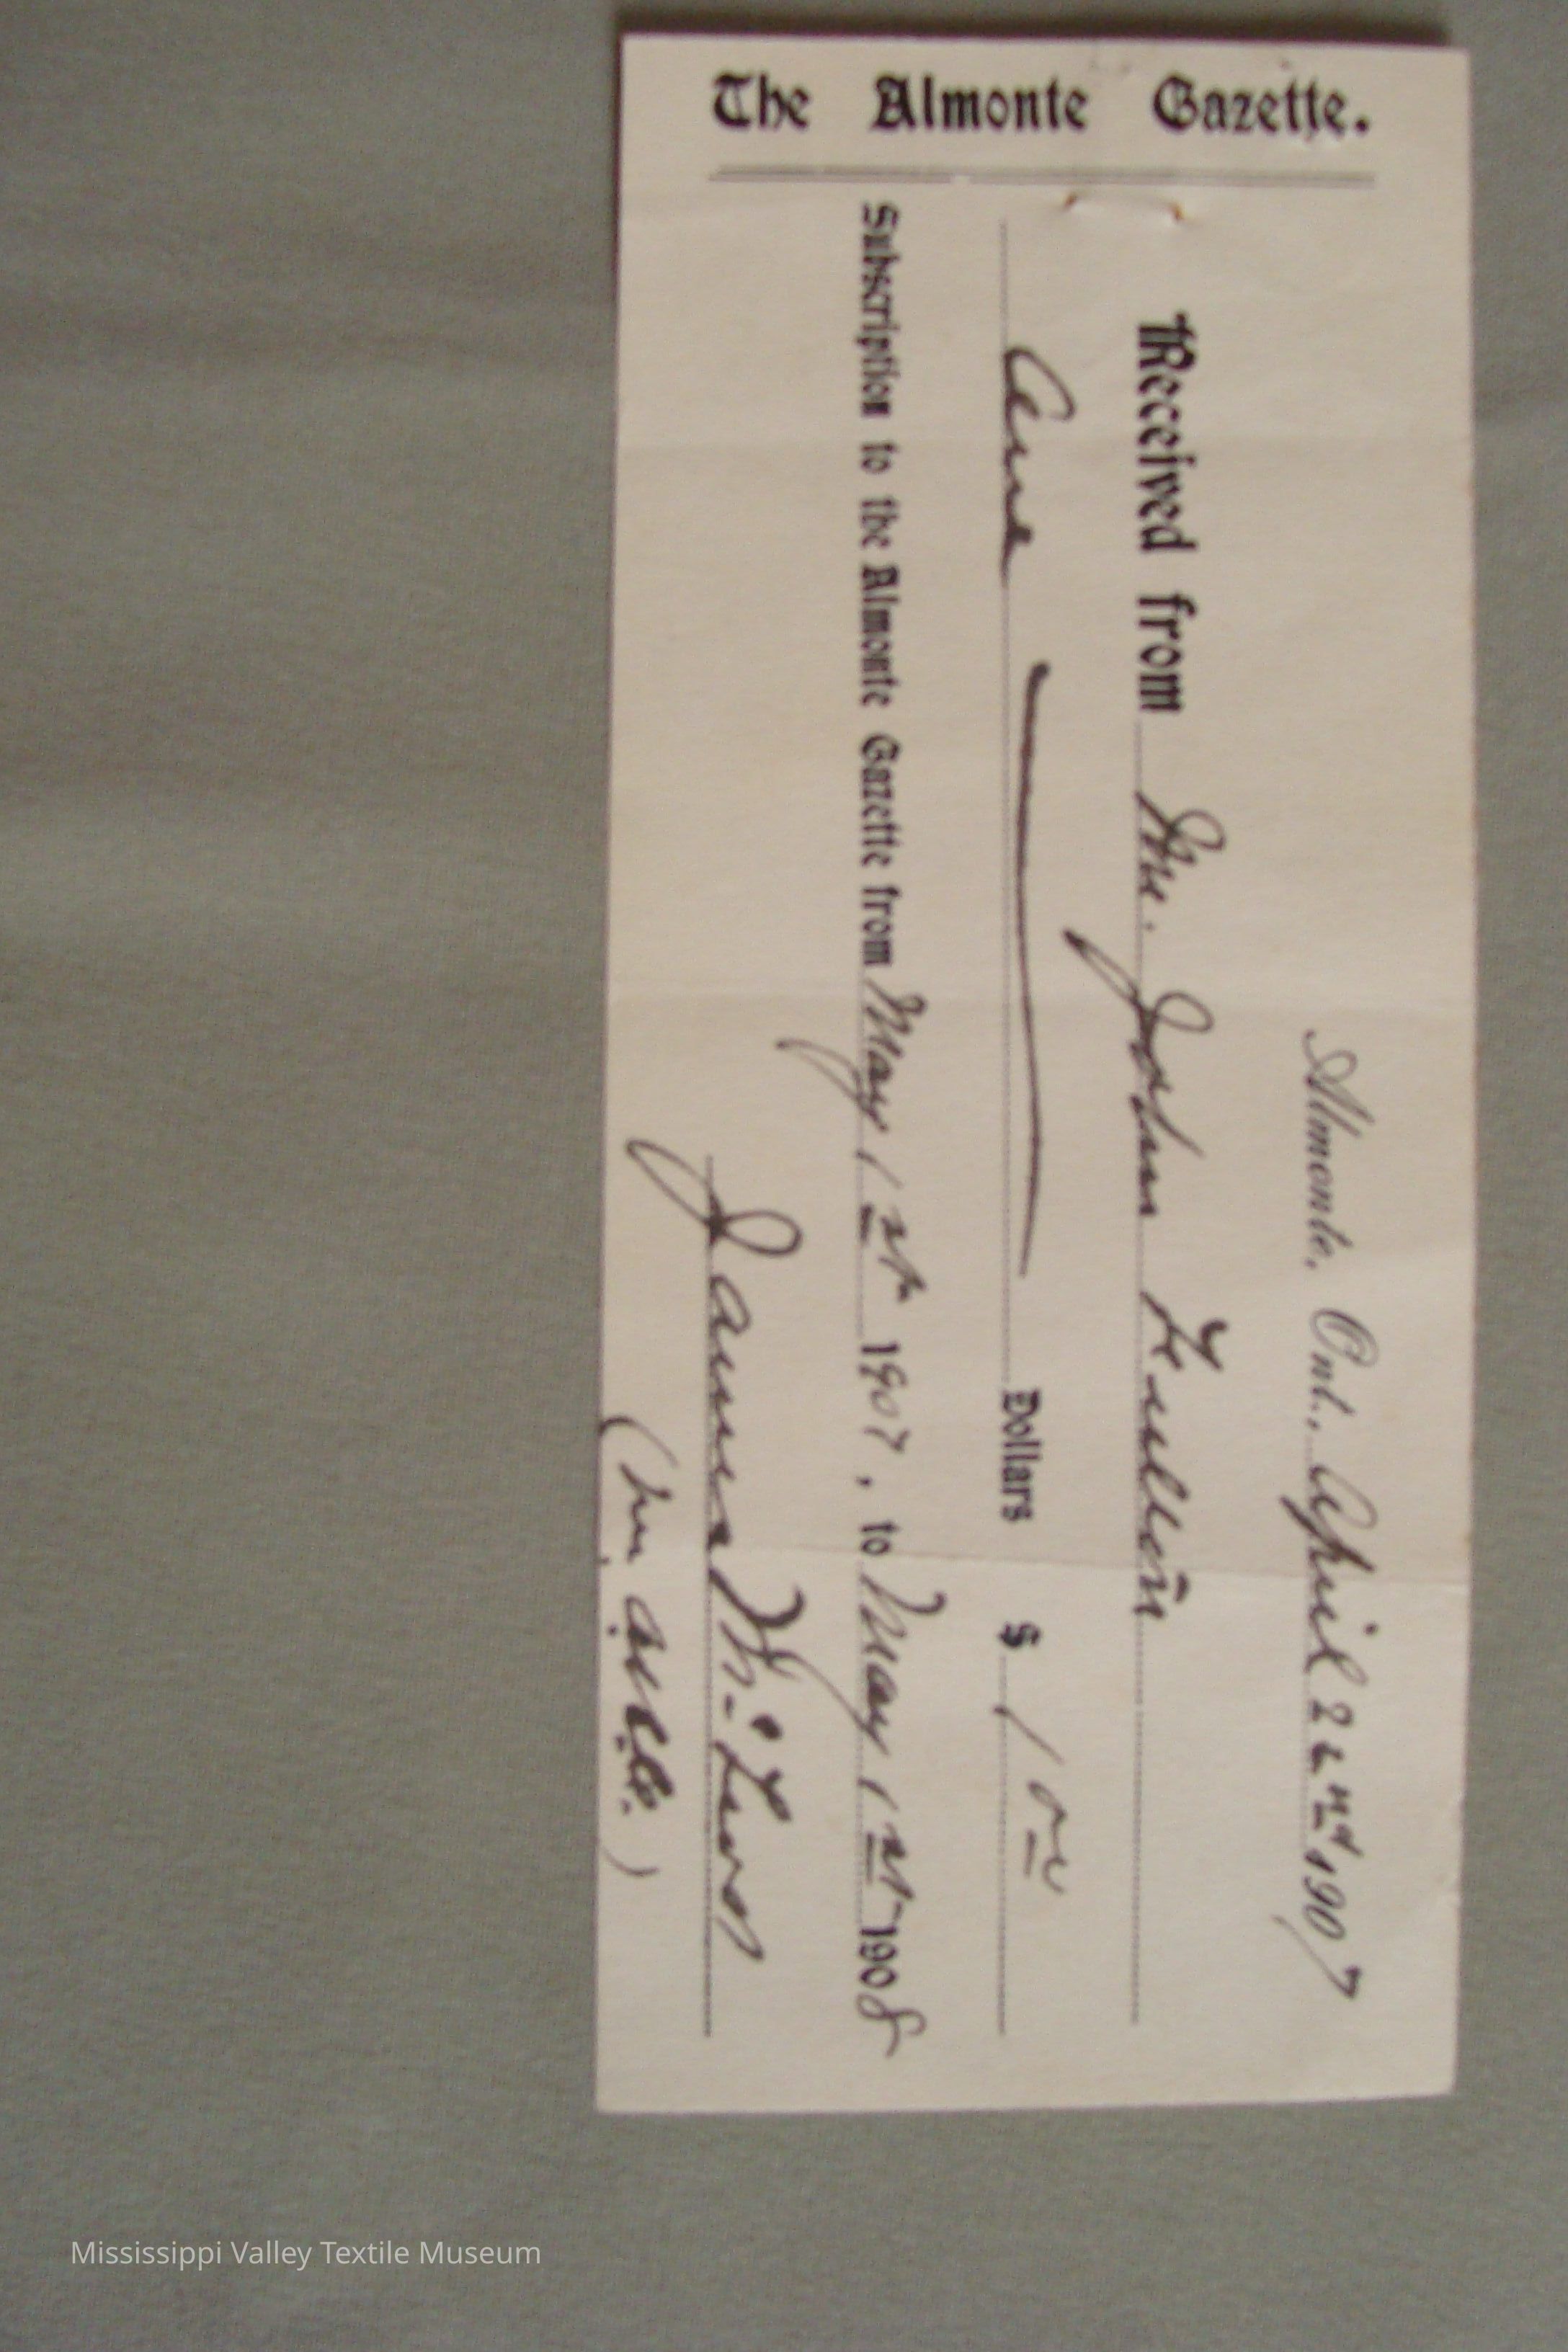 The Almonte Gazette.
Almonte, Ont., April 22nd 1907
Received from Mr. John
One Dollars $ 1.00
Subscription to the Almonte Gazette from May 1st 1907, to May 1st 1908
James McLeod
(per
Mississippi Valley Textile Museum